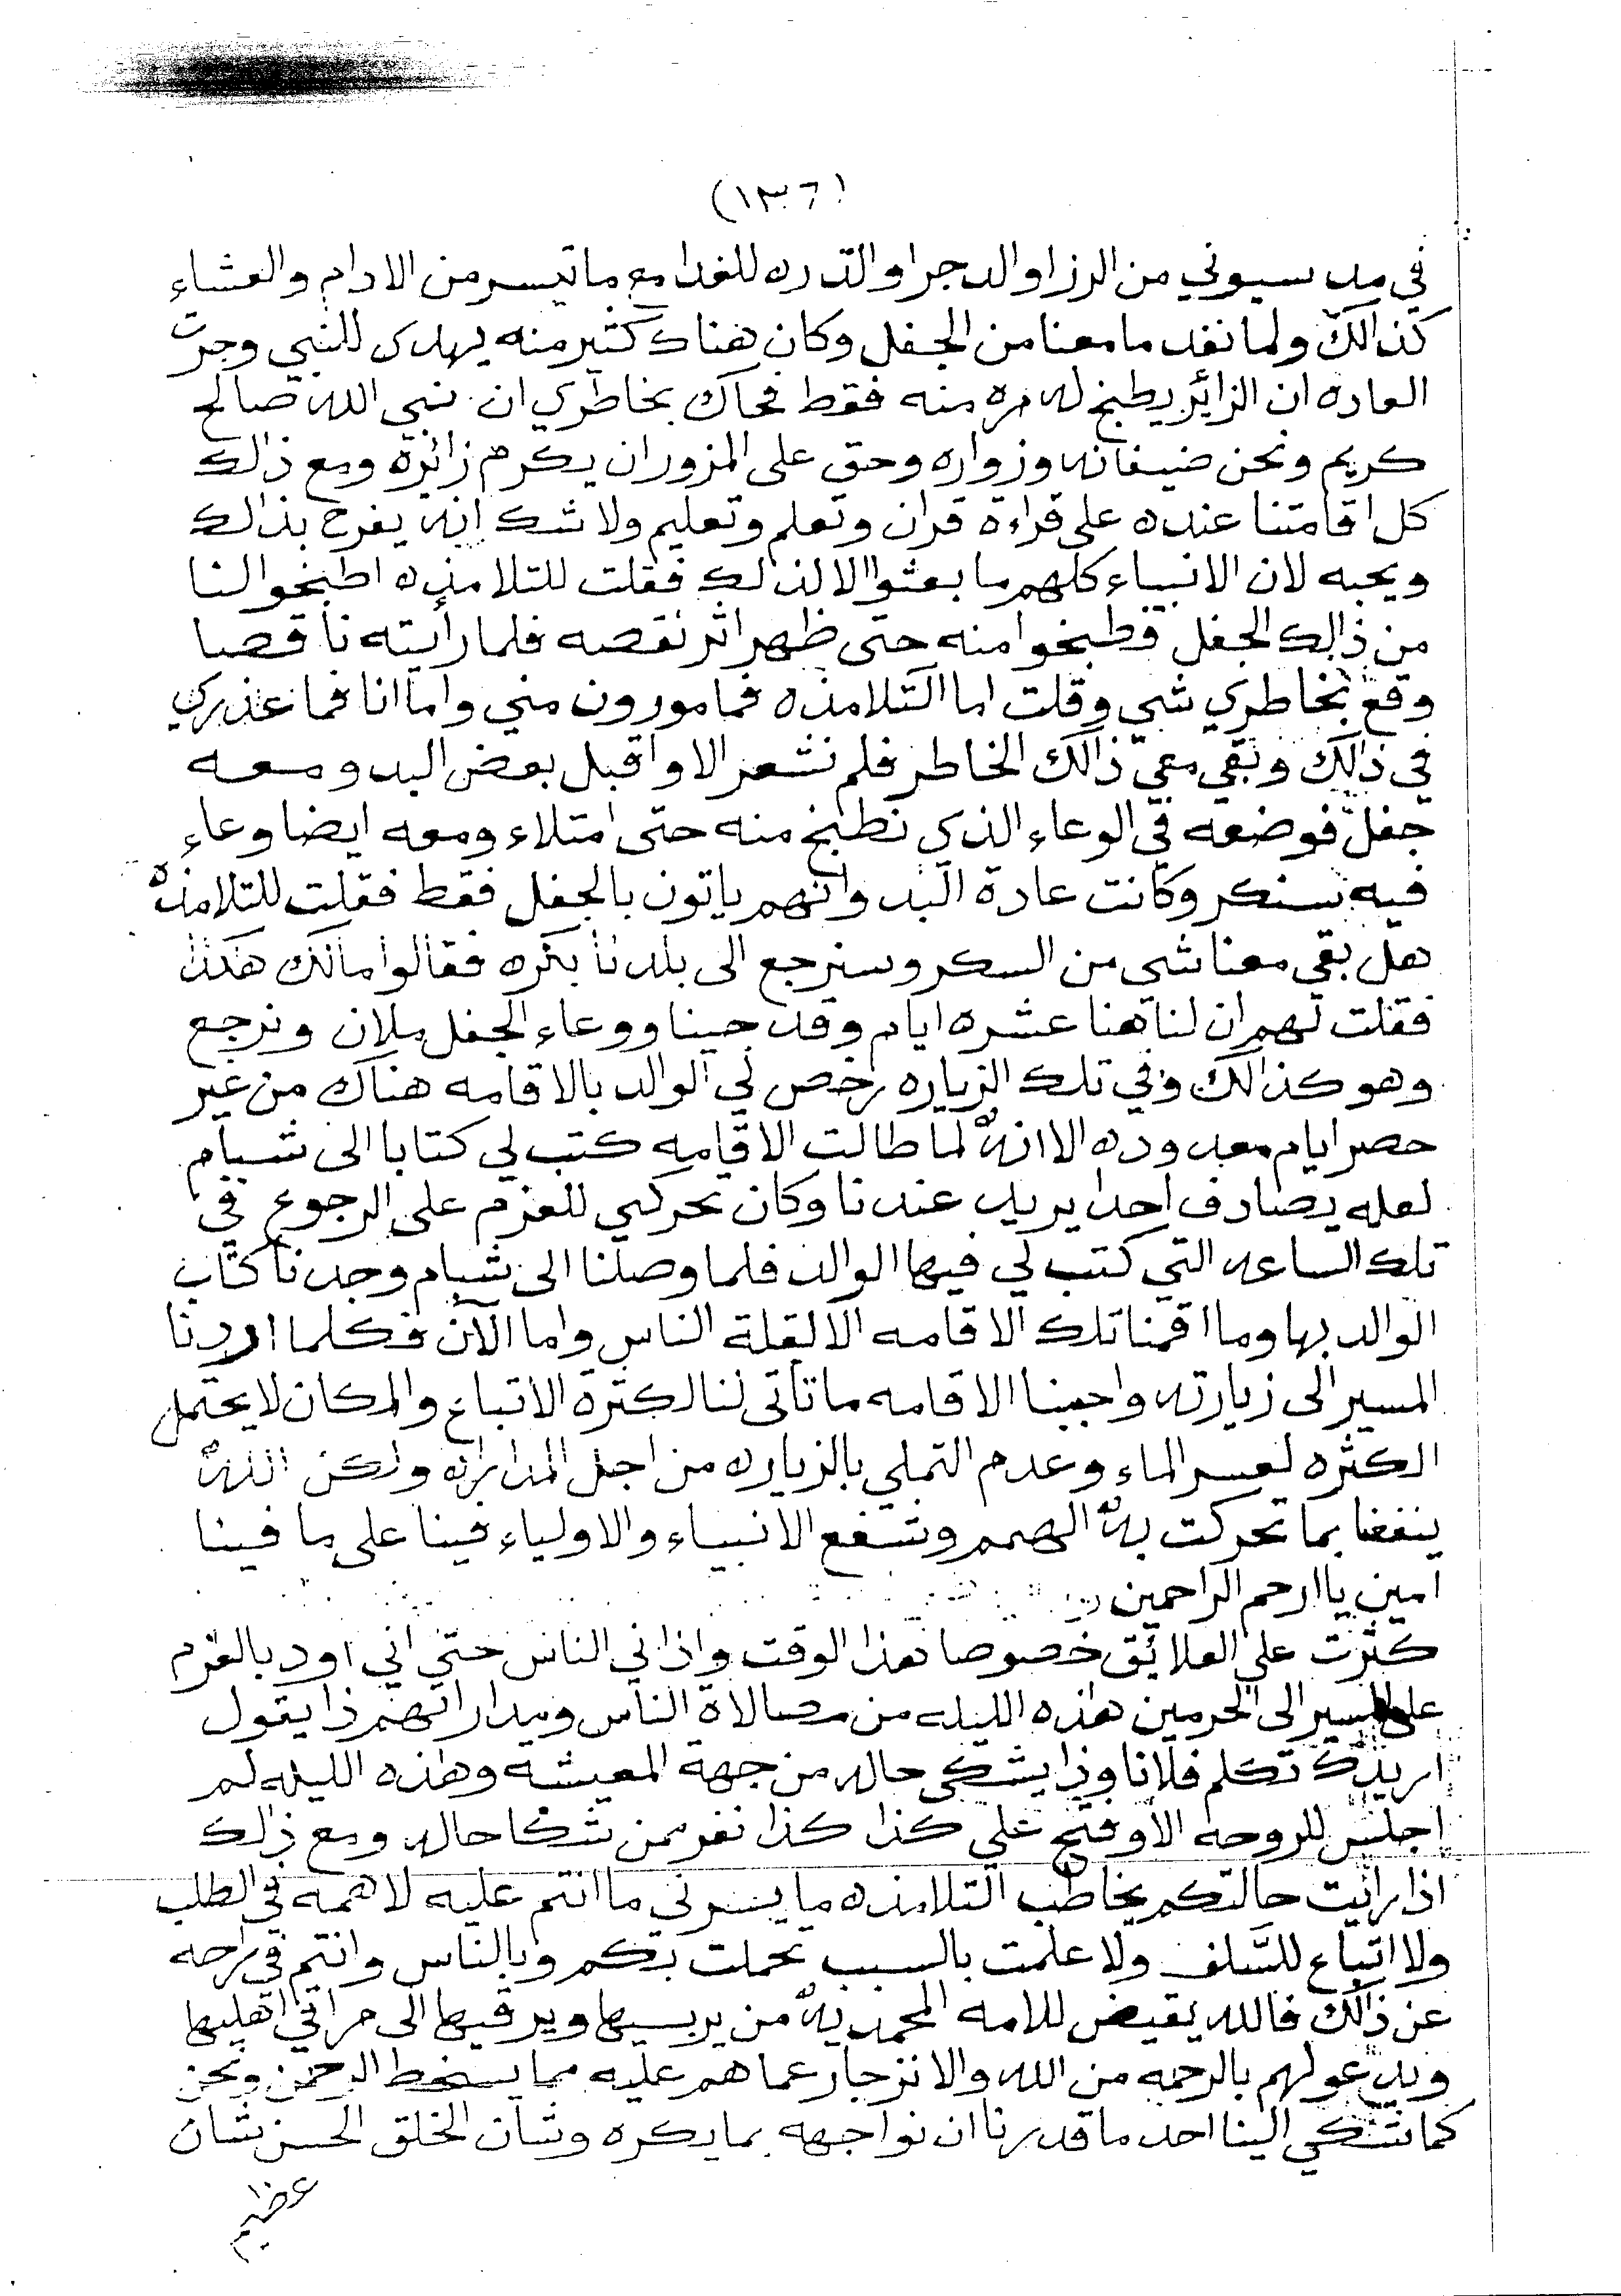 (١٣٦)
في مد سيوني من الرز او الدجر او الذره للغدا مع ماتيسر من الادام والعشاء
كذالك ولما نفد مامعنا من الجفل وكان هناك كثير منه يهدى للنبي وجرت
العاده ان الزائر يطبخ له مره منه فقط فحاك بخاطري ان نبي الله صالح
كريم ونحن ضيفانه وزواره وحق على المزور ان يكرم زائره ومع ذالك
كل اقامتنا عنده على قراءة قران وتعلم وتعليم ولا شك انه يفرح بذالك
ويحبه لان الانبياء كلهم ما بعثوا الا لذالك فقلت للتلامذه اطبخوا لنا
من ذالك الجفل فطبخوا منه حتى ظهر اثر نقصه فلما رأيته ناقصا
وقع بخاطري شي وقلت اما التلامذه فمامورون مني واما انا فما عذري
في ذالك وبقي معي ذالك الخاطر فلم نشعر الا واقبل بعض البدو ومعه
جفل فوضعه في الوعاء الذي نطبخ منه حتى امتلاء ومعه ايضا وعاء
فيه سكر وكانت عادة البدو انهم ياتون بالجفل فقط فقلت للتلامذه
هل بقي معنا شي من السكر وسنرجع الى بلدنا بكره فقالوا مالك هكذا
فقلت لهم ان لنا هنا عشره ايام وقد جينا ووعاء الجفل ملان ونرجع
وهو كذالك وفي تلك الزياره رخص لي الوالد بالاقامه هناك من غير
حصر ايام معدوده الا انه لما طالت الاقامه كتب لي كتابا الى شبام
لعله يصادف احدا يريد عندنا وكان تحركي للعزم على الرجوع في
تلك الساعه التي كتب لي فيها الوالد فلما وصلنا الى شبام وجدنا كتاب
الوالد بها وما اقمنا تلك الاقامه الا لقلة الناس واما الآن فكلما اردنا
المسير الى زيارته واحببنا الاقامه ما تأتى لنا لكثرة الاتباع والمكان لا يحتمل
الكثره لعسر الماء وعدم التملي بالزياره من اجل المدابره ولكن الله
ينفعنا بما تحركت به الهمم وشفع الانبياء والاولياء فينا على ما فينا
امين يا ارحم الراحمين
كثرت علي العلائق خصوصا هذا الوقت واذاني الناس حتى اني اود بالعزم
على المسير الى الحرمين هذه الليله من مصالاة الناس ومداراتهم ذا يقول
اريدك تكلم فلانا وذا يشكي حاله من جهة المعيشه وهذه الليله لم
اجلس للروحه الا وفتح علي كذا كذا نفر ممن شكا حاله ومع ذالك
اذا رايت حالتكم يخاطب التلامذه ما يسرني ما انتم عليه لا همه في الطلب
ولا اتباع للسلف ولا علمت بالسبب تحملت بكم وبالناس وانتم في راحه
عن ذالك فالله يقيض للامه المحمديه من يربيها ويرقيها الى مراقي اهليها
ويدعو لهم بالرحمه من الله والانزجار عما هم عليه مما يسخط الرحمن ونحن
كما شكي الينا احد ما قدرنا ان نواجهه بما يكره وشان الخلق الحسن شان
عظيم